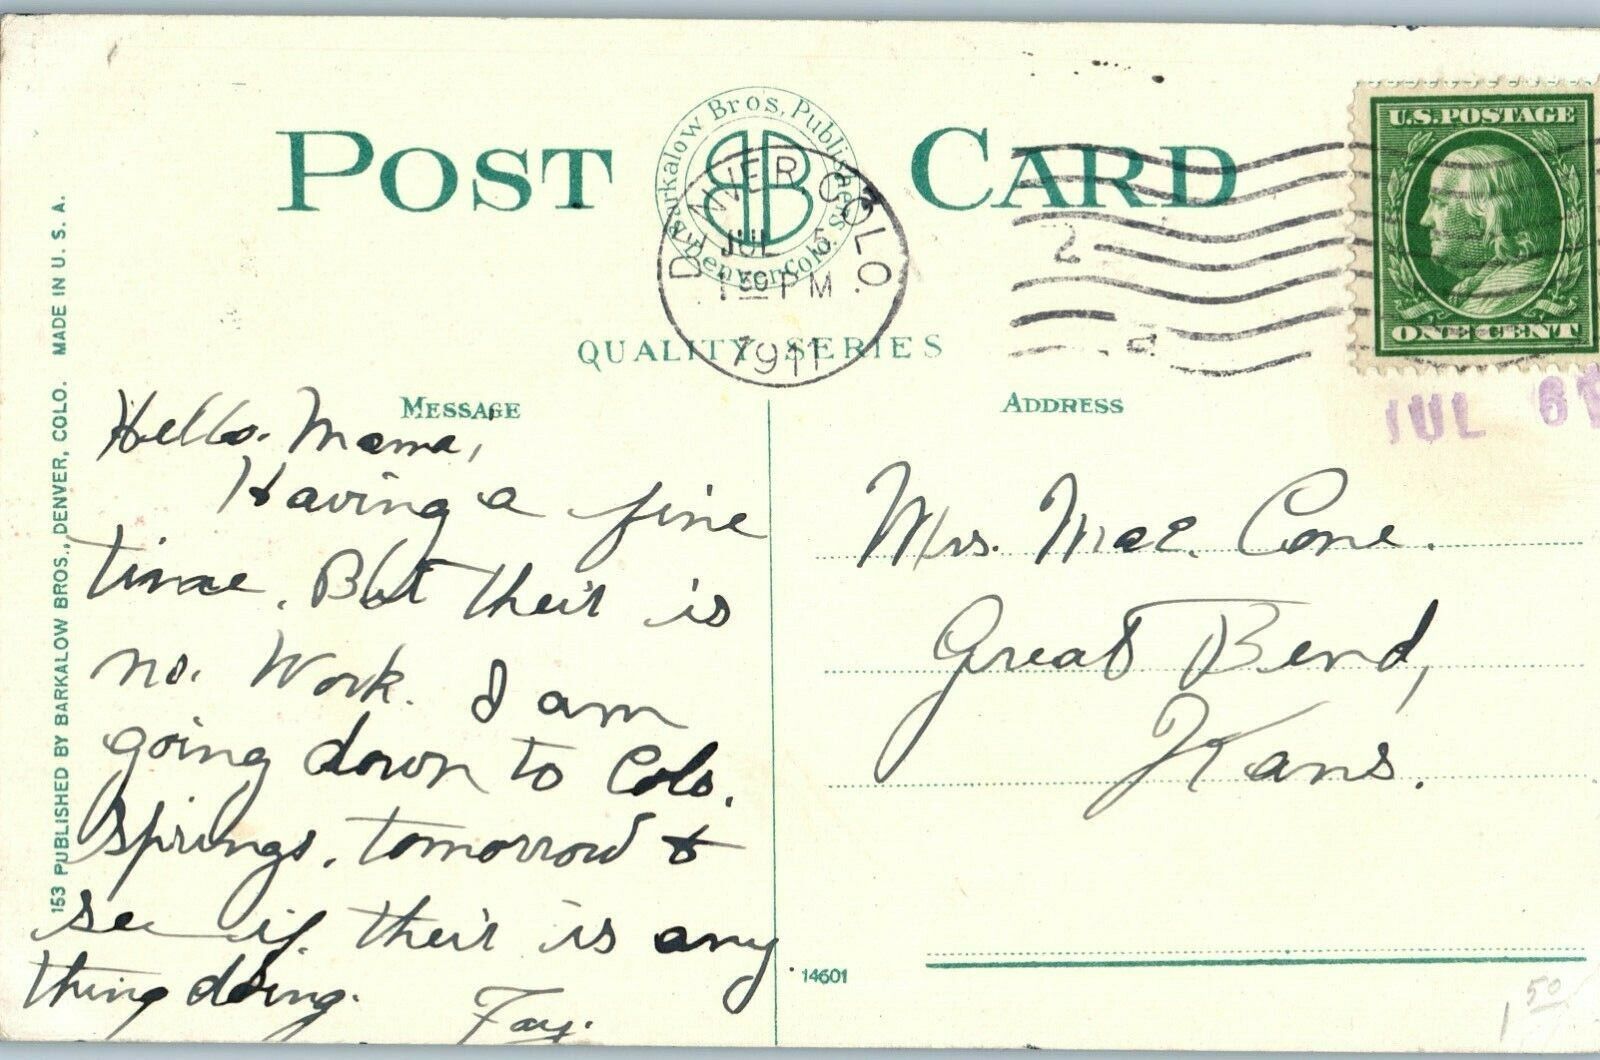 POST CARD
Barkalow Bros. Publishers
Denver Colo.
BB
DENVER COLO.
JUL 5
1 30 PM
1911
2
U.S. POSTAGE
ONE CENT
JUL 6
QUALITY SERIES
MESSAGE
ADDRESS
Hello. Mama,
Having a fine
time. But their is
no. Work. I am
going down to Colo.
Springs. tomorrow &
see if. their is any
thing doing.
Fay.
Mrs. Mae. Cone.
Great Bend,
Kans.
153 PUBLISHED BY BARKALOW BROS., DENVER, COLO. MADE IN U. S. A.
14601
1 50